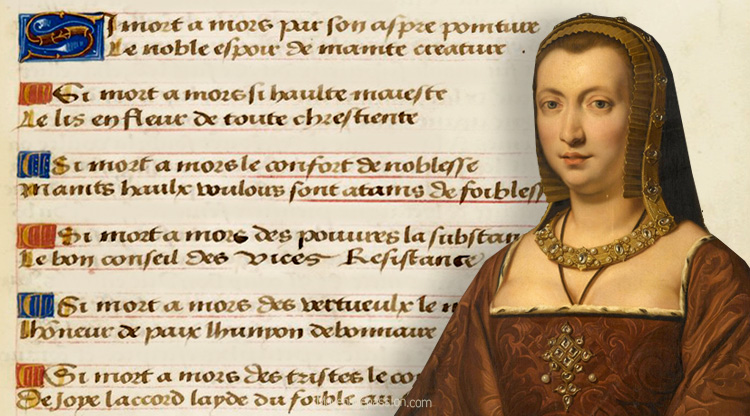 Si mort a mors par son aspre pointure
Le noble espoir de mainte creature .
Si mort a mors si haulte maieste
Le lis en fleur de toute chrestiente
Si mort a mors le confort de noblesse
Maints haulx vouloirs sont atains de foibless
Si mort a mors des pouures la substan
Le bon conseil des vices Resistance
Si mort a mors des vertueulx le
de paix debonnaire
Si mort a mors des tristes le co
De Joye laccord layde du foible